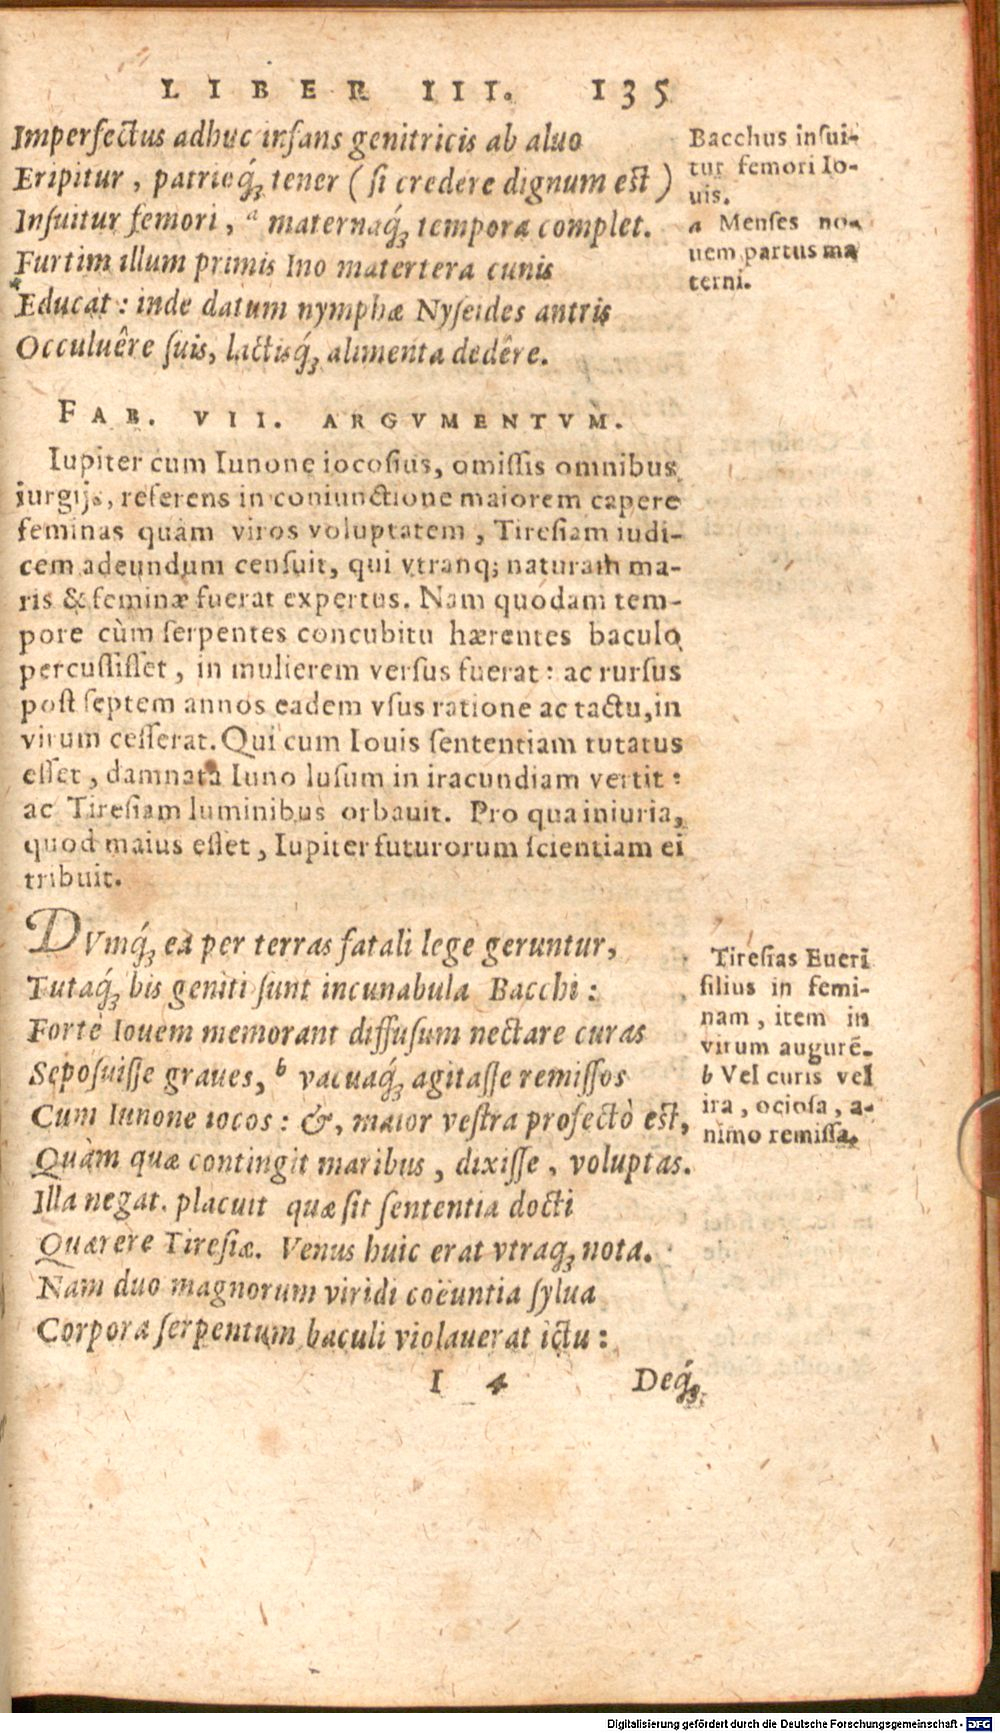 LIBER III. 135
Imperfectus adhuc infans genitricis ab aluo
Eripitur, patrieq́; tener (si credere dignum est)
Insuitur femori, a maternaq́; tempora complet.
Furtim illum primis Ino matertera cunis
Educat: inde datum nymphæ Nyseides antris
Occuluêre suis, lactisq́; alimenta dedêre.
Bacchus insui-
tur femori Io-
uis.
a Menses no-
uem partus ma
terni.
FAB. VII. ARGVMENTVM.
Iupiter cum Iunone iocosius, omissis omnibus
iurgijs, referens in coniunctione maiorem capere
feminas quàm viros voluptatem, Tiresiam iudi-
cem adeundum censuit, qui vtranq; naturam ma-
ris & feminæ fuerat expertus. Nam quodam tem-
pore cùm serpentes concubitu hærentes baculo
percussisset, in mulierem versus fuerat: ac rursus
post septem annos eadem vsus ratione ac tactu, in
virum cesserat. Qui cum Iouis sententiam tutatus
esset, damnata Iuno lusum in iracundiam vertit:
ac Tiresiam luminibus orbauit. Pro qua iniuria,
quod maius esset, Iupiter futurorum scientiam ei
tribuit.
DVmq́; ea per terras fatali lege geruntur,
Tutaq́; bis geniti sunt incunabula Bacchi:
Fortè Iouem memorant diffusum nectare curas
Seposuisse graues, b vacuaq́; agitasse remissos
Cum Iunone iocos: &, maior vestra profectò est,
Quàm quæ contingit maribus, dixisse, voluptas.
Illa negat. placuit quæ sit sententia docti
Quærere Tiresiæ. Venus huic erat vtraq́; nota.
Nam duo magnorum viridi coëuntia sylua
Corpora serpentum baculi violauerat ictu:
Tiresias Euerī
filius in femi-
nam, item in
virum augurē.
b Vel curis vel
ira, ociosa, a-
nimo remissa.
I 4 Deq́;
Digitalisierung gefördert durch die Deutsche Forschungsgemeinschaft - DFG